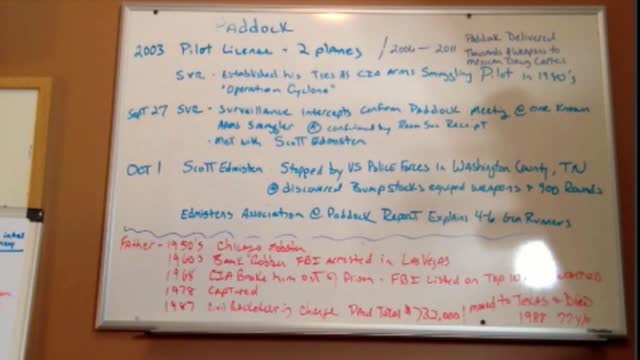 Paddock
2003 Pilot License - 2 planes / 2006 - 2011 Paddock Delivered
Thousands of Weapons to
Mexican Drug Cartel
SVR - Established his Ties As CIA Arms Smuggling Pilot in 1980's
"Operation Cyclone"
Sept 27 SVR - Surveillance intercepts confirm Paddock Meeting @ one Known
Arms Smuggler @ confirmed by Room Svc Receipt
- Met with Scott Edmisten
Oct 1 Scott Edmisten - Stopped by US Police Forces in Washington County, TN
@ discovered Bumpstocks equiped weapons + 900 Rounds
Edmistens Association @ Paddock Report Explains 4-6 Gun Runners
Father - 1950's Chicago Mobster
1960's Bank Robber FBI arrested in Las Vegas
1968 CIA Broke him out of Prison - FBI Listed on Top 10
1978 Captured
1987 Civil Racketeering Charge Paid Total $732,000 / moved to Texas & Died
1988 77 y/o
intel